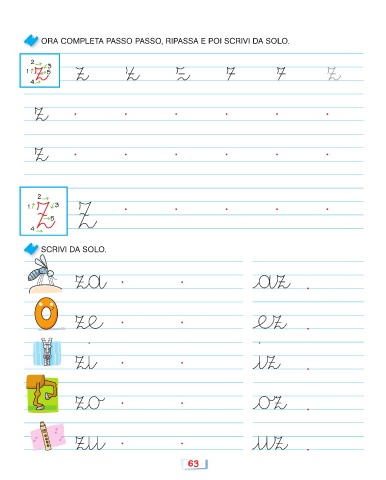 ORA COMPLETA PASSO PASSO, RIPASSA E POI SCRIVI DA SOLO.
2 3 1 z 5 4 z z z z z z
z
z
2 1 3 z 5 4 z
SCRIVI DA SOLO.
za az
ze ez
zi iz
zo oz
zu uz
63